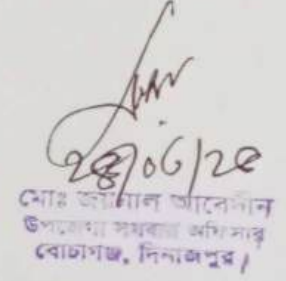 ২৪/০৬/২৫
মোঃ জয়নাল আবেদীন
উপজেলা সমবায় অফিসার
বোচাগঞ্জ, দিনাজপুর।